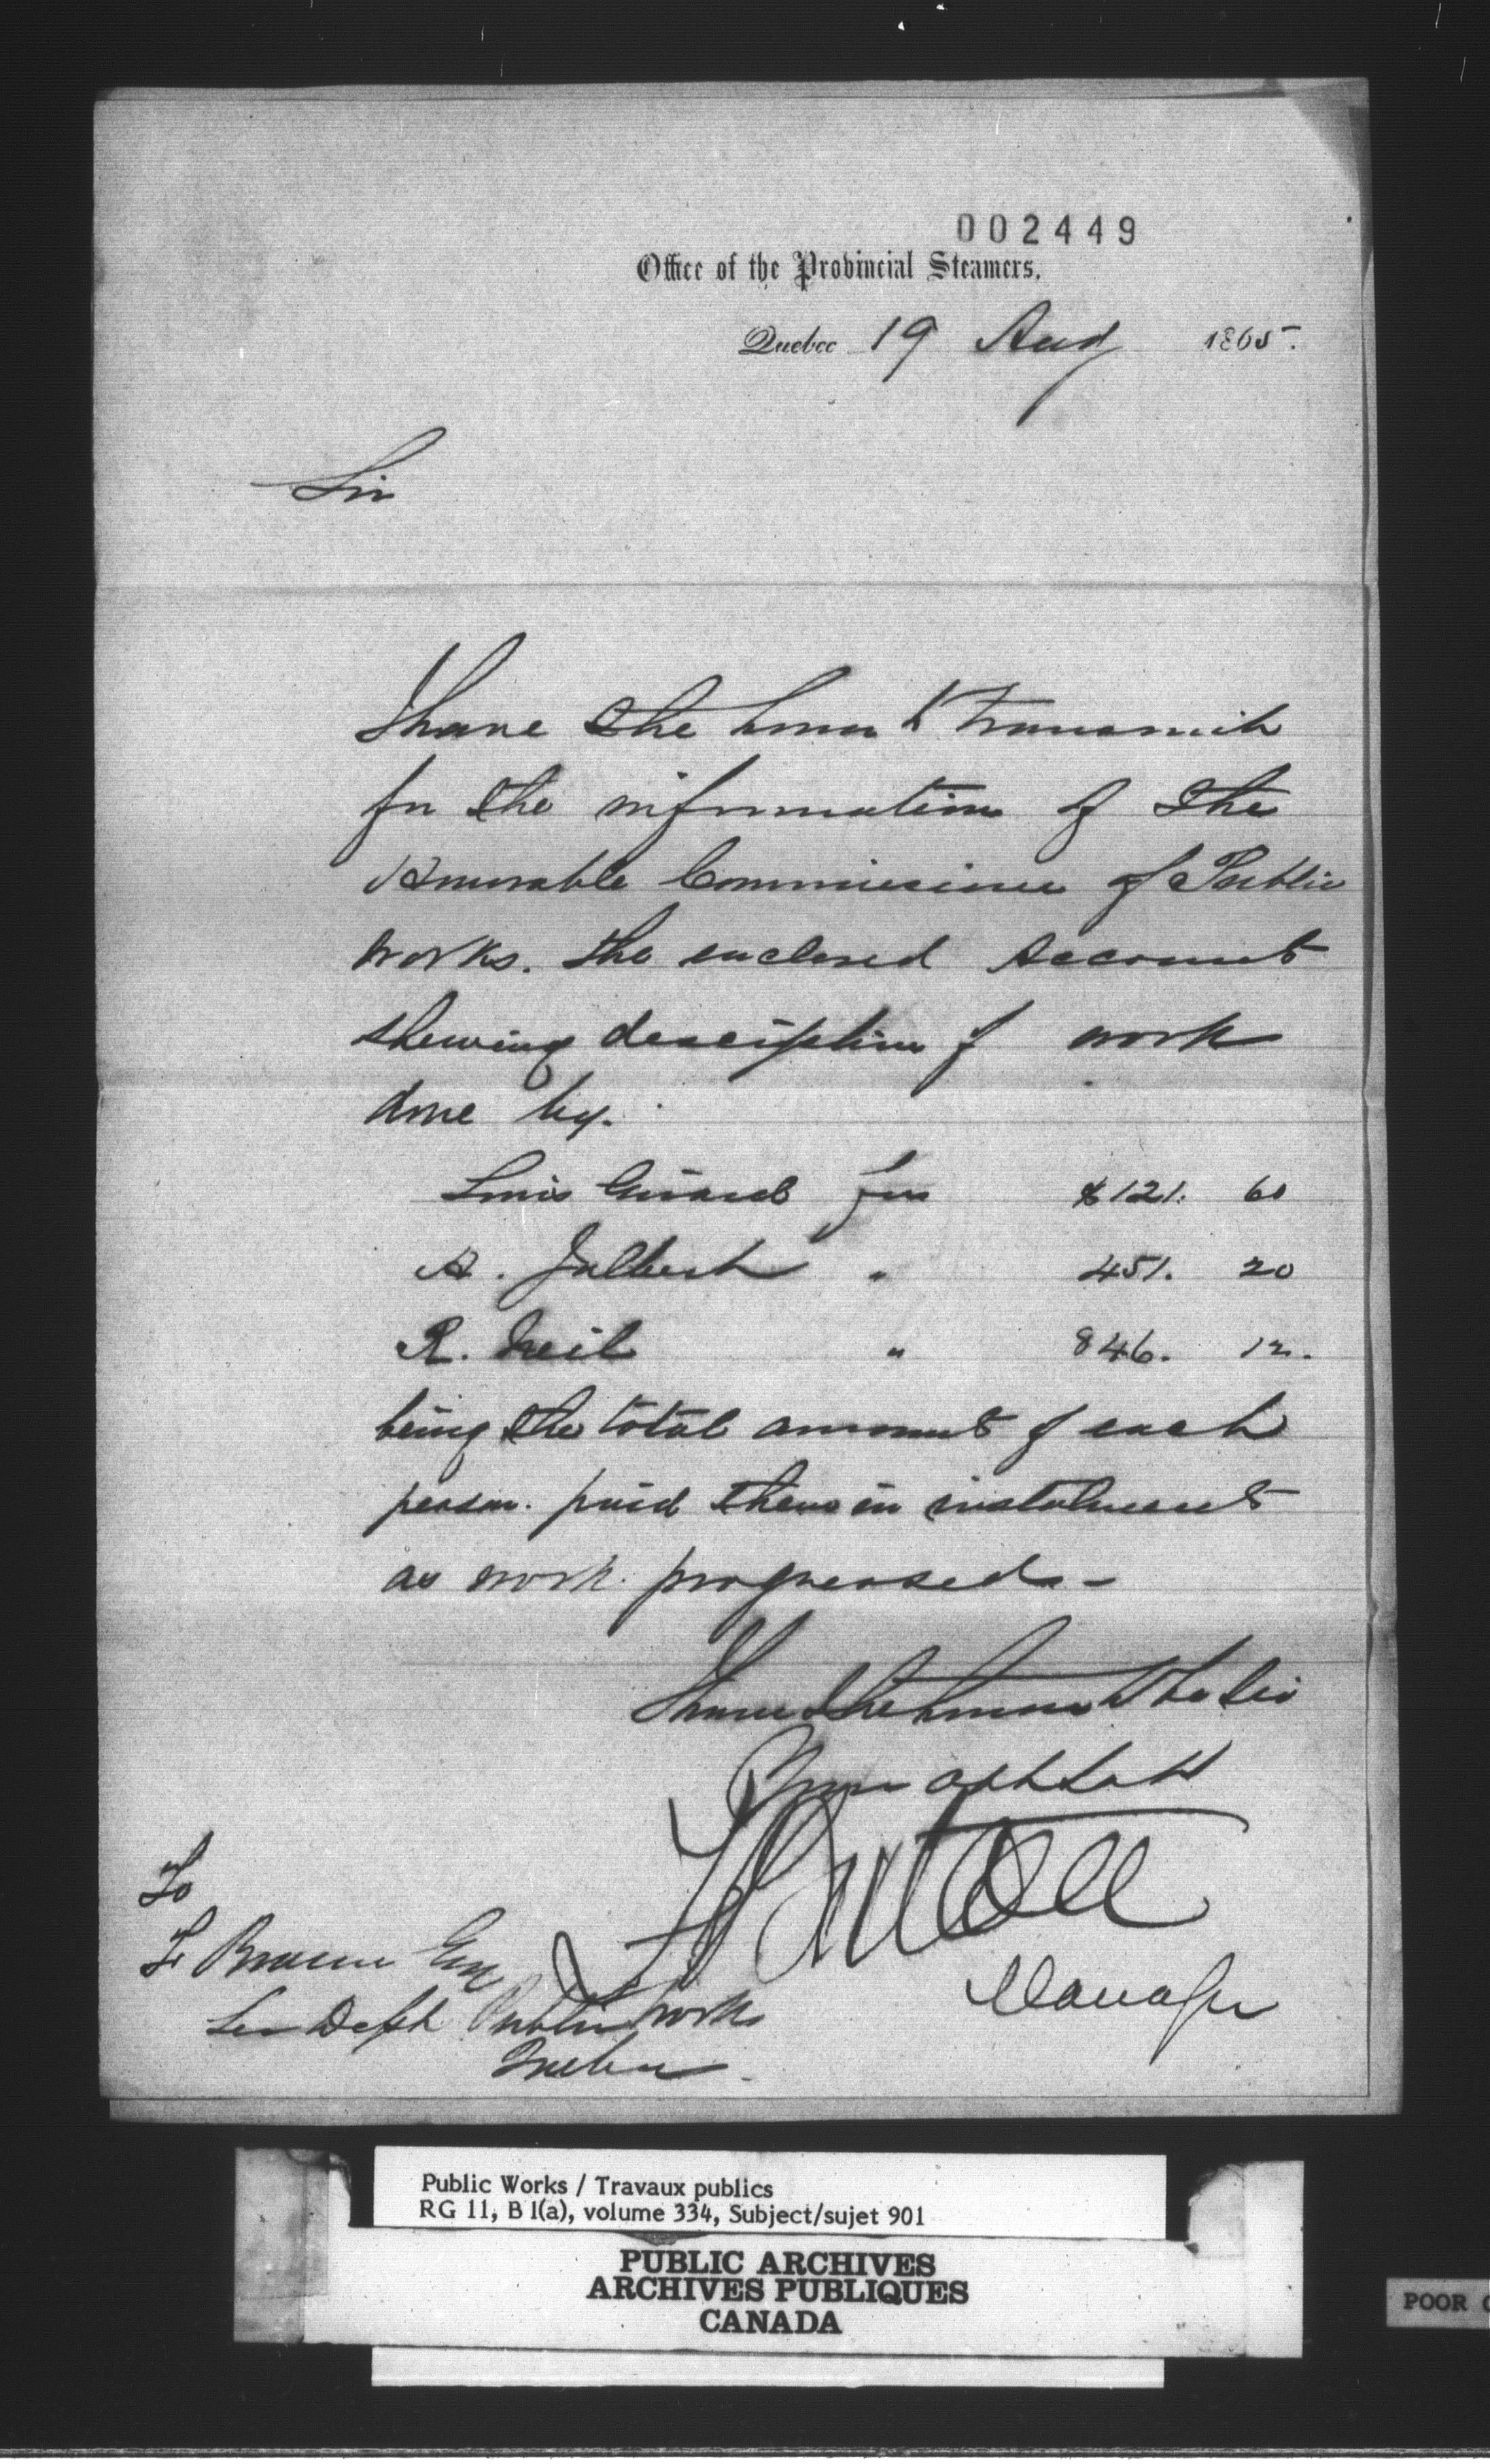 002449
Office of the Provincial Steamers.
Quebec 19 Aug 1865.
Sir
I have the honor to transmit
for the information of the
Honorable Commissioner of Public
works. the enclosed Accounts
shewing description of work
done by.
Louis Girard for $121. 60
A. Jalbert " 451. 20
R. Neil " 846. 12.
being the total amount of each
person. paid them in instalments
as work progressed -
I have the honor to be Sir
Your obt Servt
Manager
To
F. Braun Esq
Sec Dept Public Works
Quebec
Public Works / Travaux publics
RG 11, B 1(a), volume 334, Subject/sujet 901
PUBLIC ARCHIVES
ARCHIVES PUBLIQUES
CANADA
POOR